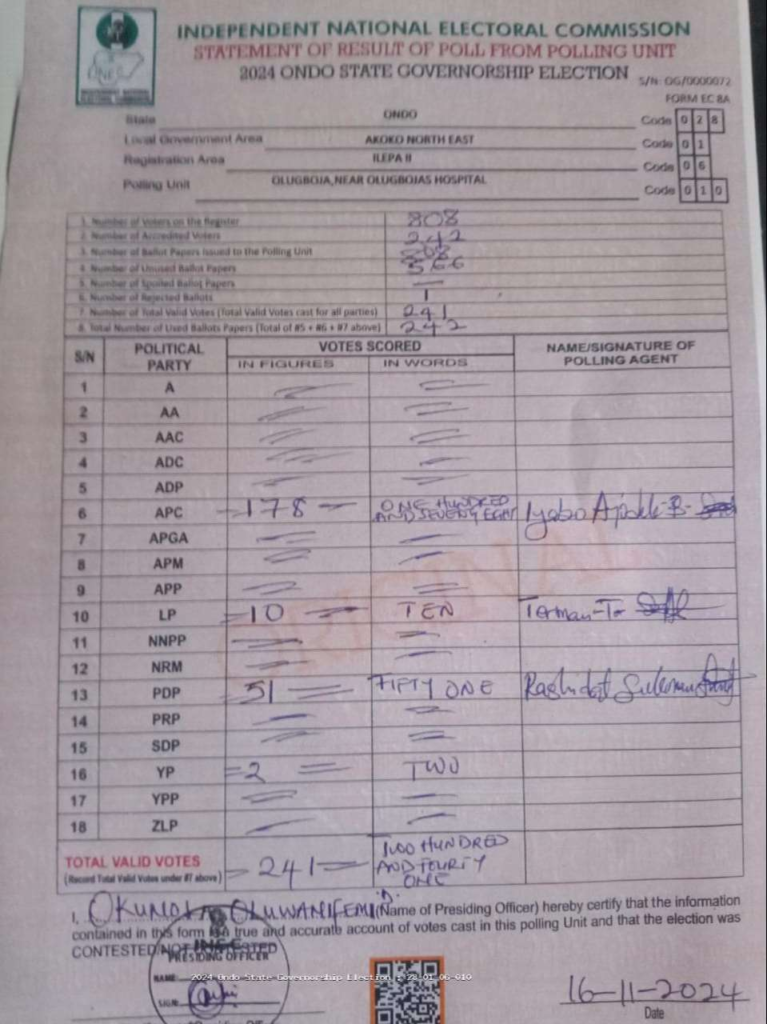 INDEPENDENT NATIONAL ELECTORAL COMMISSION
STATEMENT OF RESULT OF POLL FROM POLLING UNIT
2024 ONDO STATE GOVERNORSHIP ELECTION
S/N: OG/0000072
FORM EC 8A
State ONDO Code 0 2 8
Local Government Area AKOKO NORTH EAST Code 0 1
Registration Area ILEPA II Code 0 6
Polling Unit OLUGBOJA,NEAR OLUGBOJAS HOSPITAL Code 0 1 0
1. Number of Voters on the Register 808
2. Number of Accredited Voters 242
3. Number of Ballot Papers Issued to the Polling Unit 808
4. Number of Unused Ballot Papers 566
5. Number of Spoiled Ballot Papers —
6. Number of Rejected Ballots 1
7. Number of Total Valid Votes (Total Valid Votes cast for all parties) 241
8. Total Number of Used Ballots Papers (Total of #5 + #6 + #7 above) 242
S/N POLITICAL PARTY VOTES SCORED NAME/SIGNATURE OF POLLING AGENT
IN FIGURES IN WORDS
1 A
2 AA
3 AAC
4 ADC
5 ADP
6 APC 178 ONE HUNDRED AND SEVENTY EGHT Iyabo
7 APGA
8 APM
9 APP
10 LP 10 TEN
11 NNPP
12 NRM
13 PDP 51 FIFTY ONE Rashidat
14 PRP
15 SDP
16 YP 2 TWO
17 YPP
18 ZLP
TOTAL VALID VOTES 241 TWO HUNDRED AND FOURTY ONE
(Record Total Valid Votes under #7 above)
I, OLUWANIFEMI D. (Name of Presiding Officer) hereby certify that the information
contained in this form is a true and accurate account of votes cast in this polling Unit and that the election was
CONTESTED/NOT CONTESTED
INEC
PRESIDING OFFICER
NAME
SIGN
2024 Ondo State Governorship Election : 28-01-06-010
16-11-2024
Date